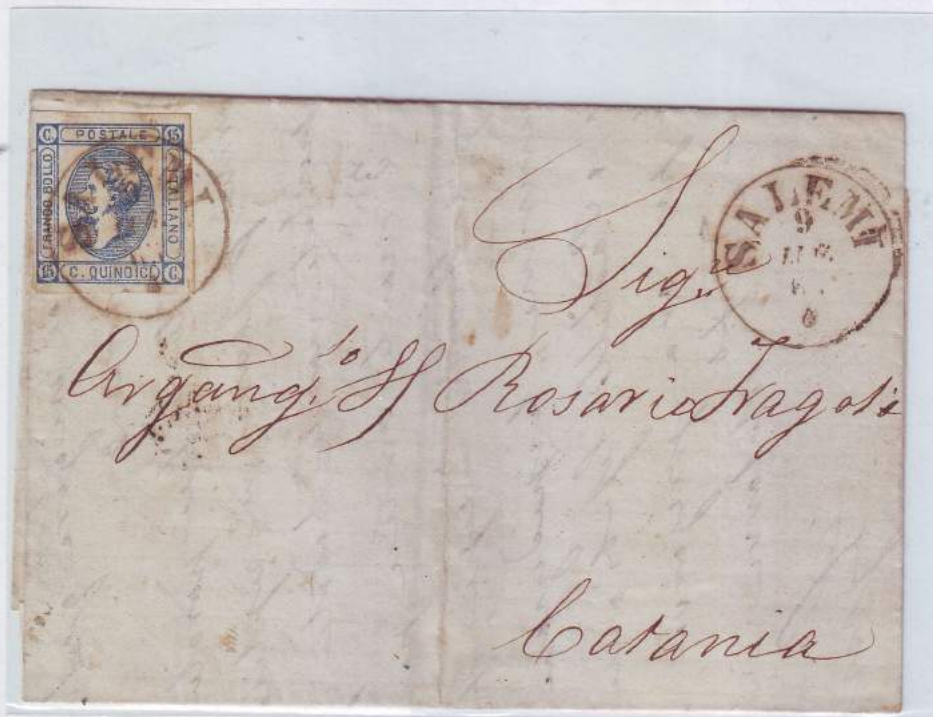 C. POSTALE 15
FRANCO BOLLO
ITALIANO
15 C. QUINDICI C.
SALEMI
9
LUG.
Sig.re
Arcang.lo Rosario Fragalà
Catania